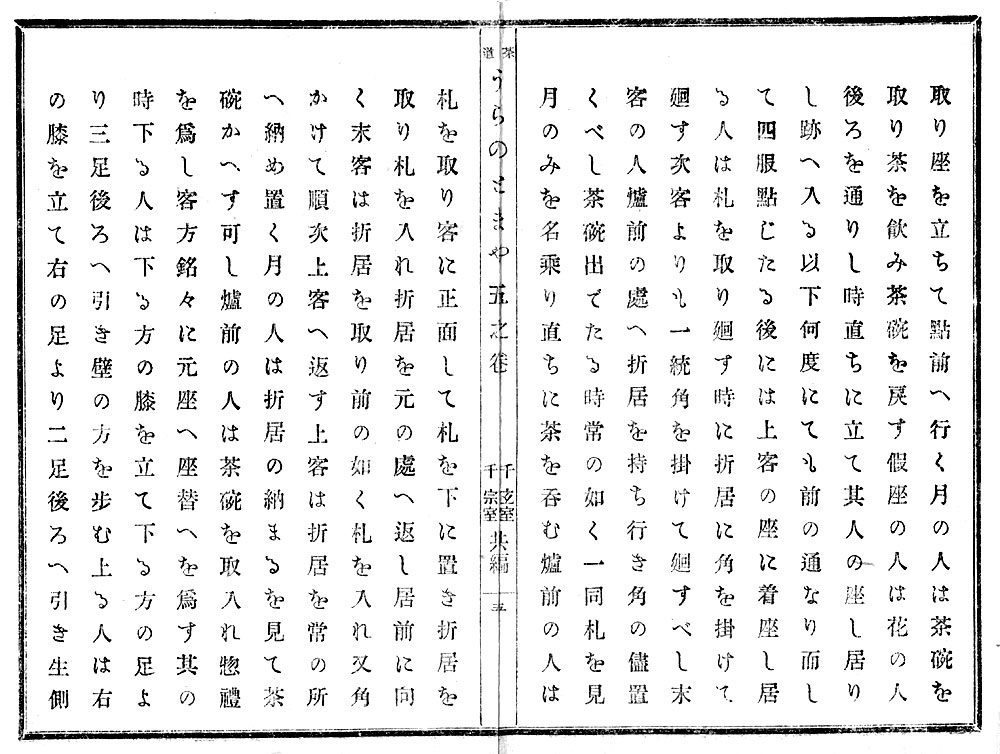 取り座を立ちて點前へ行く月の人は茶碗を
取り茶を飮み茶碗を戻す假座の人は花の人
後ろを通りし時直ちに立て其人の座し居り
し跡へ入る以下何度にても前の通なり而し
て四服點じたる後には上客の座に着座し居
る人は札を取り廻す時に折居に角を掛けて
廻す次客よりも一統角を掛けて廻すべし末
客の人爐前の處へ折居を持ち行き角の儘置
くべし茶碗出でたる時常の如く一同札を見
月のみを名乘り直ちに茶を呑む爐前の人は
茶道 うらのとまや 五之卷 千玄室 千宗室 共編 五
札を取り客に正面して札を下に置き折居を
取り札を入れ折居を元の處へ返し居前に向
く末客は折居を取り前の如く札を入れ又角
かけて順次上客へ返す上客は折居を常の所
へ納め置く月の人は折居の納まるを見て茶
碗かへす可し爐前の人は茶碗を取入れ惣禮
を爲し客方銘々に元座へ座替へを爲す其の
時下る人は下る方の膝を立て下る方の足よ
り三足後ろへ引き壁の方を步む上る人は右
の膝を立て右の足より二足後ろへ引き生側